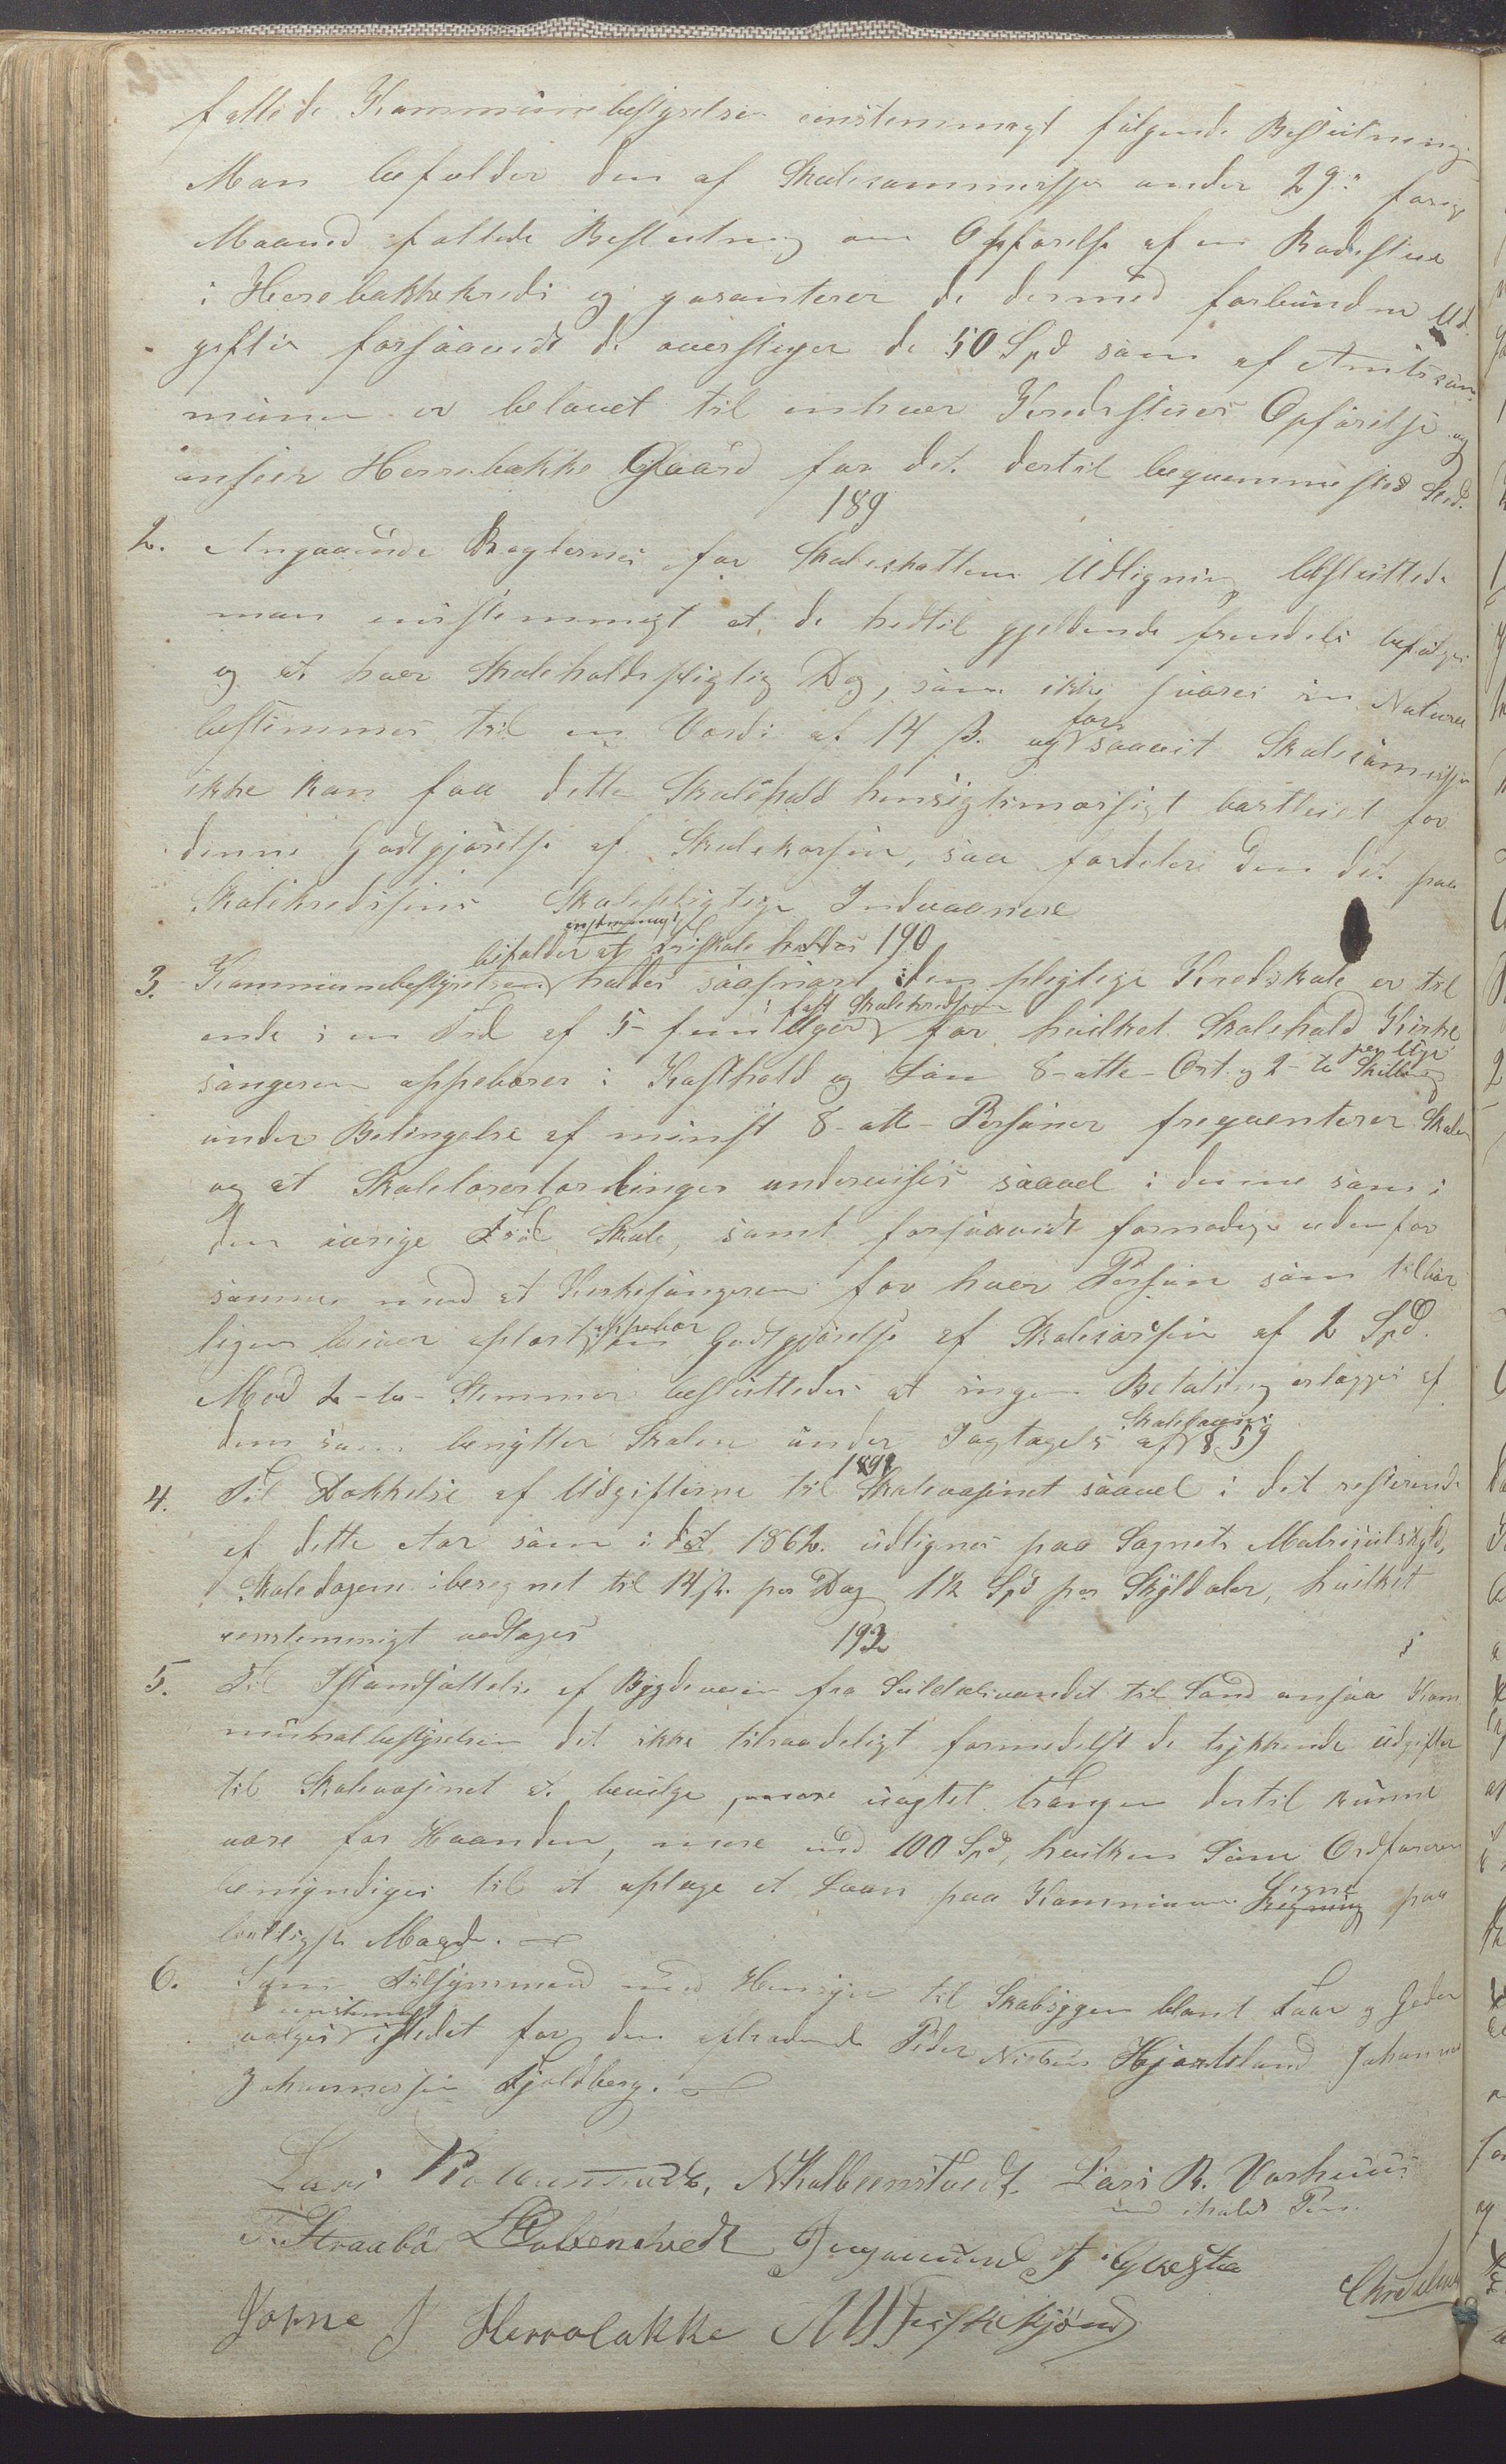 fattede Kommunebestyrelsen einstemmigt følgende Beslutning
Man befalder den af Skolecommissjon under 29de forige
Maaned fattede Beslutning om Opførelse af en Rodestue
i Herebakkekreds og garanterer de dermed forbundne Ud-
gifter forsaavidt de overstiger de 50 Spd som af Amtscom-
munen er belovet til enhver Kredsstues Opførelse og
anseer Herrebakke Gaard for det dertil beqvemmeste Sted.
189
2. Angaaende Reglerne for Skoleskattens Udligning besluttede
man einstemmigt at de hidtil gjeldende fremdeles befølges
og at hver Skoleholdspligtig Dag, som ikke svares in Natura
bestemmes til en Værdi af 14 ß. og forsaavit Skolecomissjon
ikke kan faa dette Skolehold hensigtsmæssigt bortleiet for
denne Godtgjørelse af Skolekassen, saa fordeler den det paa
Skolekredsens Skolepligtige Indvaanere
einstemmigt
bifalder at friskole holdes 190
3. Kommunebestyrelsen holdes saasnart den pligtige Kredsskole er til
i fast Skolekredsen
ende i en Tid af 5- fem Uger for hvilket Skolehold Kirke
per Uge
sangeren oppebærer i Kosthold og Løn 8-otte-Ort og 2-to Skilling
under Betingelse af minst 8-otte-Personer freqventerer Skolen
og at Skolelærerlærlinger undervises saavel i denne som i
den øvrige Tids Skole, samt forsaavidt fornødige udenfor
samme med at Kirkesangeren for hver Person som tilbør
ligen bliver oplært oppebær en Godtgjørelse af Skolecassen af 2 Spd.
Med 2-to- Stemmer besluttedes at ingen Betaling erlægges af
dem som benytter Skolen under Iagtagelse af Skolelovens § 59
1891
4. Til Dækkelse af Udgifterne til Skolevæsenet saavel i det resterende
af dette Aar som i det 1862. udlignes paa Sognets Matriculskyld,
Skoledagene iberegnet til 14 ß. per Dag 1½ Spd per Skylddaler, hvilket
eenstemmigt vedtages
192
5. Til Istandsættelse af Bygdeveien fra Suldalsvandet til Sand ansaa Kom
munalbestyrelsen det ikke tilraadeligt formedelst de trykkende Udgifter
til Skolevæsenet at bevilge uagtet Trangen dertil kunne
være for Haanden, mere end 100 Spd, hvilken Sum Ordføreren
bemyndiges til at optage et Laan paa Kommunens Vegne paa
lovligste Maade.
6. Som Tilsynmand med Hensyn til Skabsygen blant Faar og Geder
einstemmigt
vælges istedet for den aftrædende Peder Nielsen Hjortland Johannes
Johannessen Fjeldberg.
Lars N Kolbeenstvedt. Lars R. Vårhuus
med iholdt Pen
T. Straabø L Kolbenstvedt Ingemund T
Jorne J Herrabakke